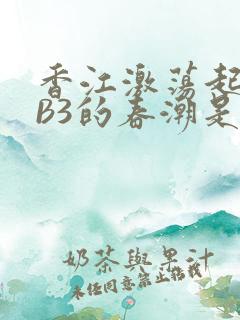 香江激荡起
B3的春潮是
奶茶與果汁
未经同意禁止搭载